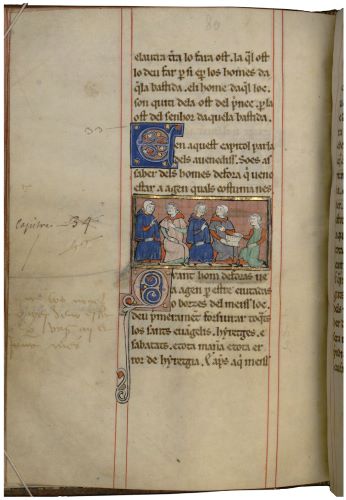 clauira tãta lo fara ost. la q̃l ost
lo deu far p̃ si ep̃ los homes da
q̃la bastida. els home daq̃l loc.
son quiti dela ost del p̃nec. p̃ la
ost del senhor daquela bastida.
En aquest capitol parla
dels auenediss. Soes a
saber dels homes defora q̃ ueno
estar a agen quals costuma nes
Quant hom defora ue
a agen p̃ estre ciutadas
o borzes del meiss loc.
deu p̃meirament forsiurar toqtz
los santz euãgelis. hyretges. e
sabatatz. e tota maria e tota er
ror de hyretgia. E ap̃s aq̃ meiss
33
capitre 34